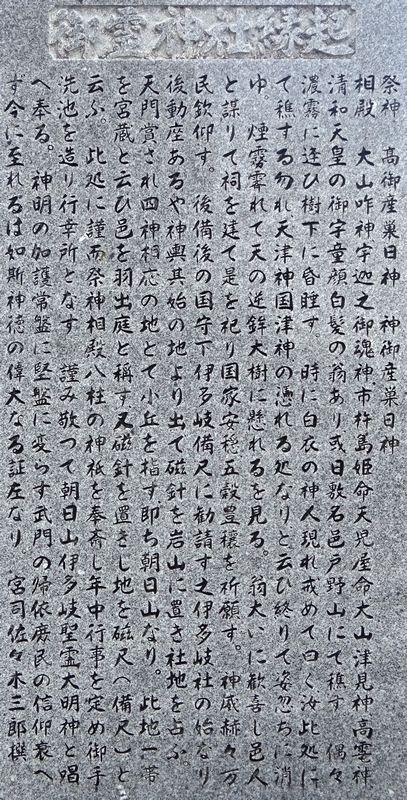 御霊神社縁起
祭神　高御産巣日神　神御産巣日神
相殿　大山咋神宇迦之御魂神市杵島姫命天児屋命大山津見神高雲神
清和天皇の御宇童顔白髪の翁あり或日敷名邑戸野山にて樵す　偶々
濃霧に逢ひ樹下に昏睡す　時に白衣の神人現れ戒めて曰く汝此処に
て樵する勿れ天津神国津神の憑れる処なりと云ひ終りて姿忽ちに消
ゆ　煙霧霽れて天の逆鉾大樹に懸れるを見る。翁大いに歓喜し邑人
と謀りて祠を建て是を祀り国家安穏五穀豊穣を祈願す。神威赫々万
民欽仰す。後備後の国守下伊多岐備尺に勧請す之伊多岐社の始なり
後動座あるや神輿其始の地より出て磁針を岩山に置き社地を占ふ。
天門賞され四神相応の地とて小丘を指す即ち朝日山なり。此地一帯
を宮蔵と云ひ邑を羽出庭と称す又磁針を置きし地を磁尺（備尺）と
云ふ。此処に謹而祭神相殿八柱の神祇を奉斎し年中行事を定め御手
洗池を造り行幸所となす　謹み敬つて朝日山伊多岐聖霊大明神と唱
へ奉る。神明の加護常盤に堅盤に変らす武門の帰依庶民の信仰衰へ
ず今に至れるは如斯神徳の偉大なる証左なり。宮司佐々木三郎撰